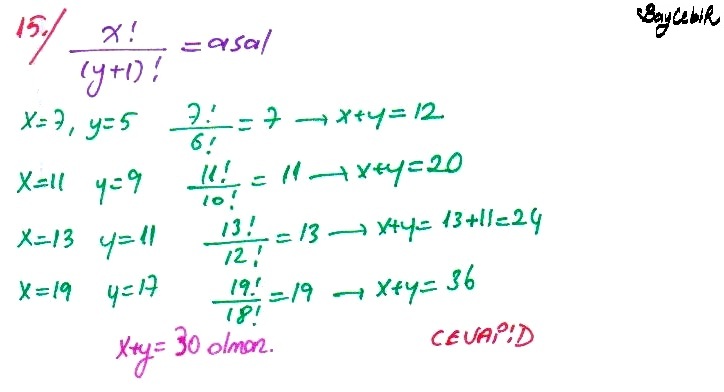 BayCebiR
15./ x!/(y+1)! = asal
x=7, y=5 7!/6! = 7 → x+y=12
x=11 y=9 11!/10! = 11 → x+y=20
x=13 y=11 13!/12! = 13 → x+y= 13+11=24
x=19 y=17 19!/18! = 19 → x+y= 36
x+y= 30 olmaz.
CEVAP:D